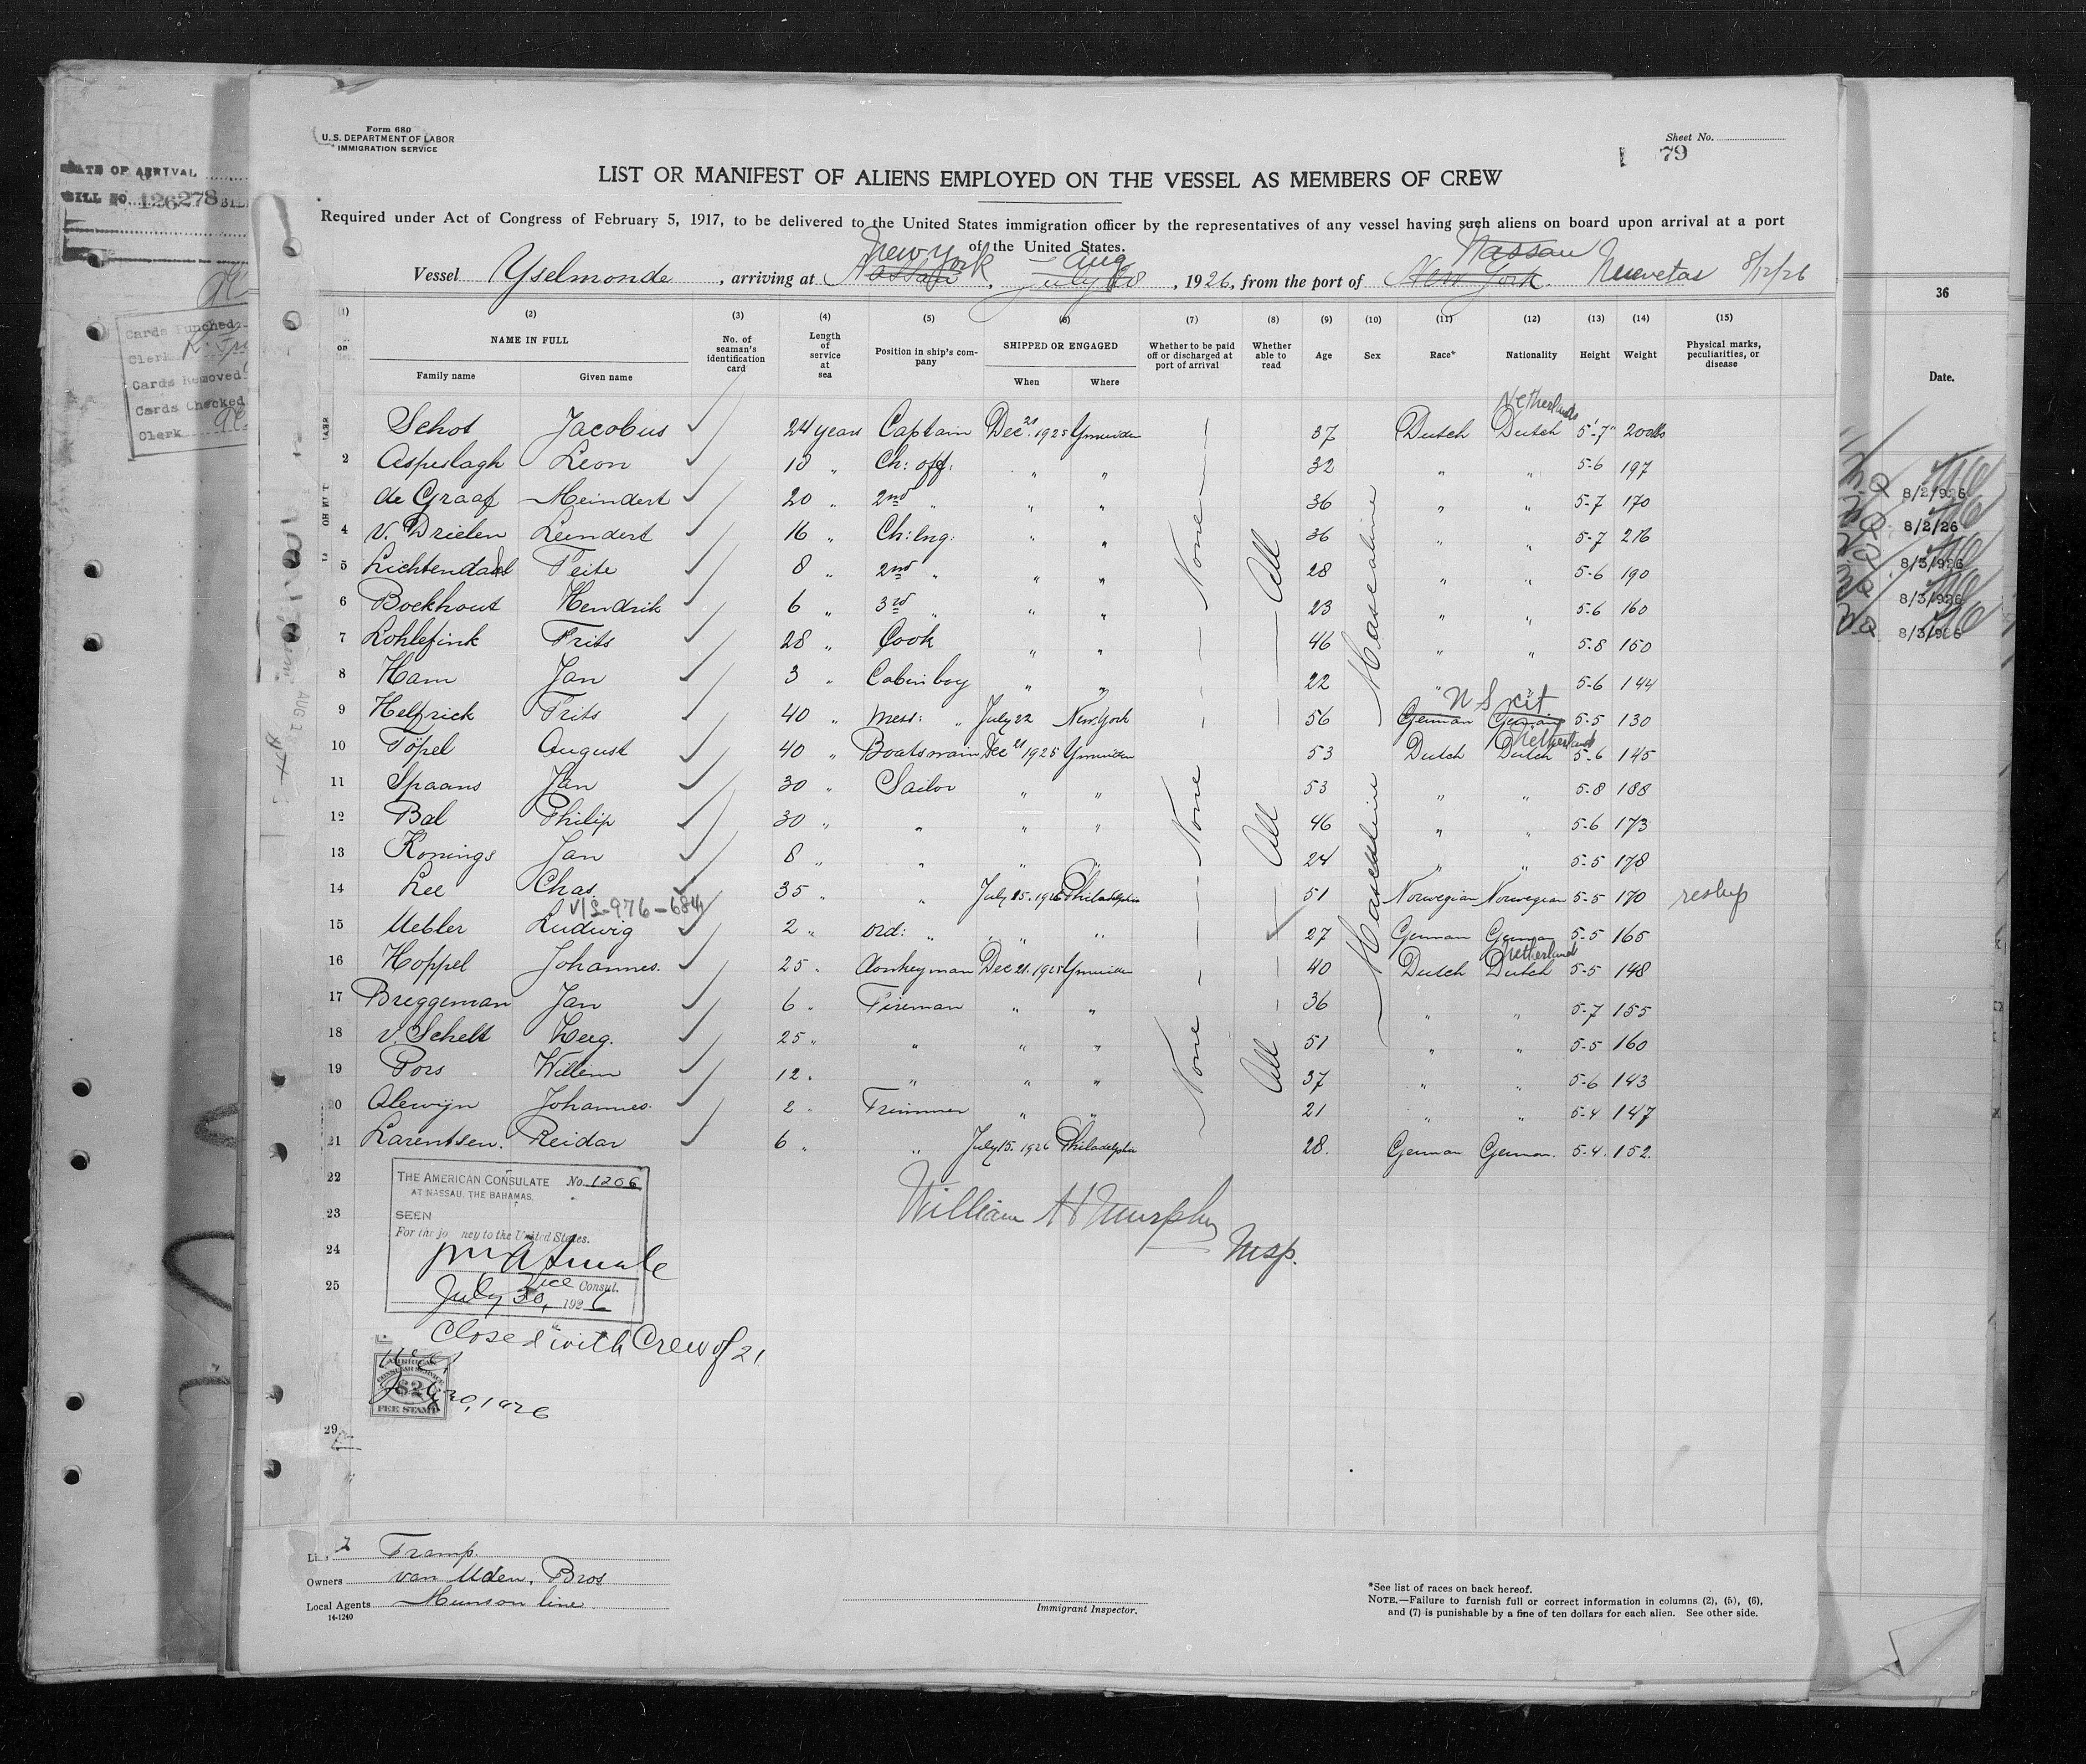 Form 680
U. S. DEPARTMENT OF LABOR
IMMIGRATION SERVICE
Sheet No.
79
LIST OR MANIFEST OF ALIENS EMPLOYED ON THE VESSEL AS MEMBERS OF CREW
Required under Act of Congress of February 5, 1917, to be delivered to the United States immigration officer by the representatives of any vessel having such aliens on board upon arrival at a port
of the United States.
New York Aug Nassau
Vessel Yselmonde, arriving at Nassau, July 28, 1926, from the port of New York. Nuevetas 8/12/26
(1) (2) (3) (4) (5) (6) (7) (8) (9) (10) (11) (12) (13) (14) (15)
NAME IN FULL No. of seaman's identification card Length of service at sea Position in ship's company SHIPPED OR ENGAGED Whether to be paid off or discharged at port of arrival Whether able to read Age Sex Race* Nationality Height Weight Physical marks, peculiarities, or disease
Family name Given name When Where
Netherlands
Schot Jacobus 24 years Captain Dec. 21 1925 Ymuiden 37 Dutch Dutch 5-7" 200 lbs
2 Aspeslagh Leon 18 " Ch: off: " " 32 " " 5-6 197
de Graaf Meindert 20 " 2nd " " " 36 " " 5-7 170
4 v. Drielen Leendert 16 " Ch: eng: " " 36 " " 5-7 216
5 Lichtendaal Feite 8 " 2nd " " " 28 " " 5-6 190
6 Boekhout Hendrik 6 " 3rd " " " 23 " " 5-6 160
7 Lohlefink Frits 28 " Cook " " 46 " " 5-8 150
8 Ham Jan 3 " Cabin boy " " 22 " " 5-6 144
N S cit
9 Helfrick Frits 40 " Mess: " July 22 New York 56 German German 5-5 130
Netherlands
10 Töpel August 40 " Boatswain Dec 21 1925 Ymuiden 53 Dutch Dutch 5-6 145
11 Spaans Jan 30 " Sailor " " 53 " " 5-8 188
12 Bal Philip 30 " " " " 46 " " 5-6 173
13 Konings Jan 8 " " " " 24 " " 5-5 178
14 Lee Chas 35 " " July 15. 1926 Philadelphia 51 Norwegian Norwegian 5-5 170 reship
15 Uebler Ludwig 2 " Ord: " " " 27 German German 5-5 165
Netherland
16 Hoppel Johannes. 25 " Donkeyman Dec 21. 1925 Ymuiden 40 Dutch Dutch 5-5 148
17 Breggeman Jan 6 " Fireman " " 36 " " 5-7 155
18 v. Schelt 25 " " " " 51 " " 5-5 160
19 Pors Willem 12 " " " " 37 " " 5-6 143
20 Alewijn Johannes. 2 " Trimmer " " 21 " " 5-4 147
21 Larentsen. Reidar 6 " " July 15. 1926 Philadelphia 28. German German. 5-4. 152.
None None None
All All All
Masculine Masculine
22
23
24
25
29
THE AMERICAN CONSULATE No. 1206
AT NASSAU, THE BAHAMAS.
SEEN
For the journey to the United States.
Vice Consul.
July 30, 1926
Closed with Crew of 21
AMERICAN
CONSULAR SERVICE
$2
FEE STAMP
July 30, 1926
William H Murphy
Insp.
Line Tramp.
Owners van Uden, Bros
Local Agents Munson line
14-1240
Immigrant Inspector.
*See list of races on back hereof.
NOTE.—Failure to furnish full or correct information in columns (2), (5), (6),
and (7) is punishable by a fine of ten dollars for each alien. See other side.
DATE OF ARRIVAL
BILL NO. 126278
Cards Punched
Clerk
Cards Removed
Cards Checked
Clerk
36
Date.
8/2/926
8/2/26
8/3/926
8/3/926
8/3/926